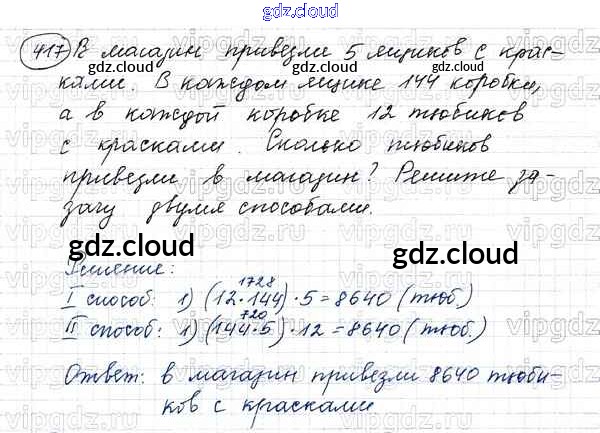 gdz.cloud
417 В магазин привезли 5 ящиков с крас-
gdz.cloud gdz.cloud
ками. В каждом ящике 144 коробки,
а в каждой коробке 12 тюбиков
gdz.cloud gdz.cloud
с красками. Сколько тюбиков
привезли в магазин? Решите за-
дачу двумя способами.
gdz.cloud gdz.cloud
Решение:
1728
I способ: 1) (12·144)·5=8640 (тюб.)
720
II способ: 1) (144·5)·12=8640 (тюб.)
Ответ: в магазин привезли 8640 тюби-
ков с красками